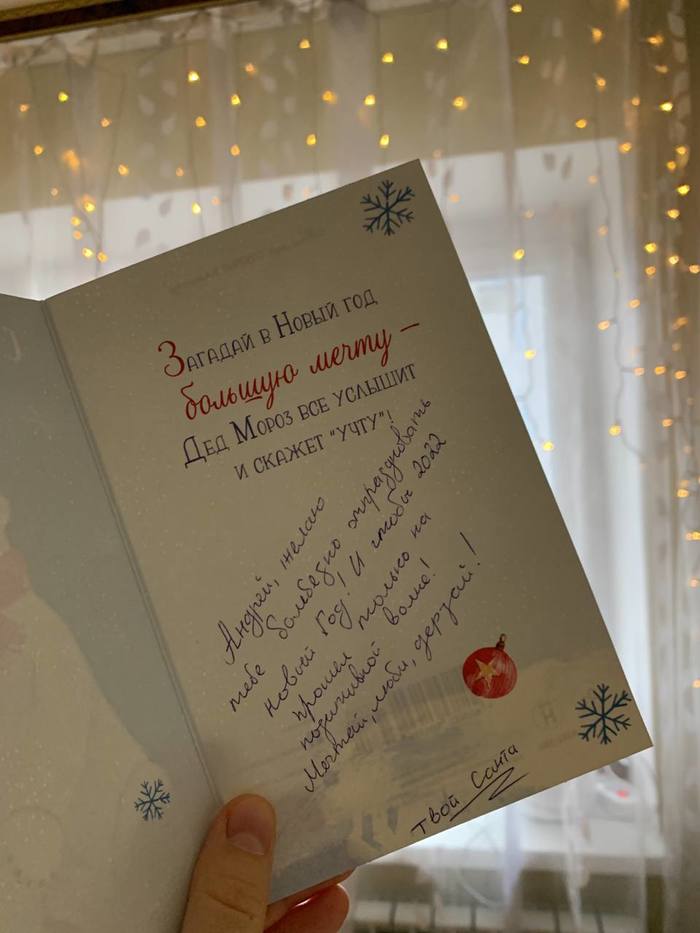 Загадай в Новый год
большую мечту –
Дед Мороз все услышит
и скажет "учту"!
Андрей, желаю
тебе бомбезно отпраздновать
новый год! И чтобы 2022
прошел только на
позитивной волне!
Мечтай, люби, дерзай!
Твой Санта